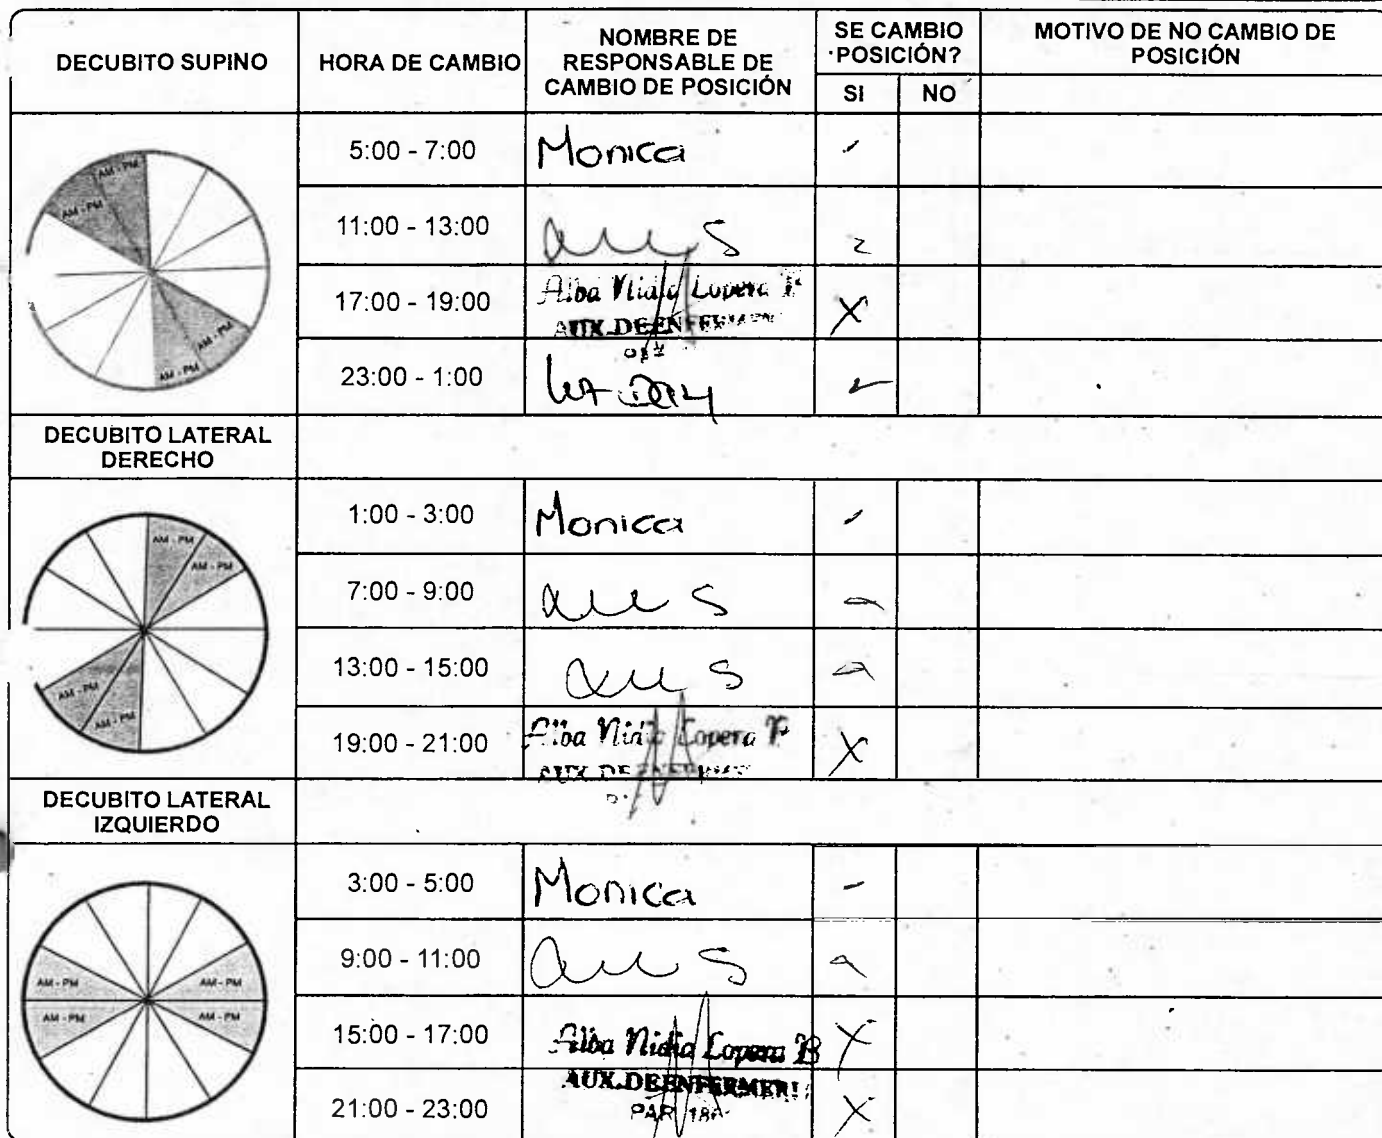 DECUBITO SUPINO
HORA DE CAMBIO
NOMBRE DE RESPONSABLE DE CAMBIO DE POSICIÓN
SE CAMBIO POSICIÓN?
SI
NO
MOTIVO DE NO CAMBIO DE POSICIÓN
AM - PM
AM - PM
AM - PM
AM - PM
5:00 - 7:00 Monica
11:00 - 13:00
17:00 - 19:00 Alba Nidia Lopera
AUX. DE
X
23:00 - 1:00
DECUBITO LATERAL DERECHO
AM - PM
AM - PM
AM - PM
AM - PM
1:00 - 3:00 Monica
7:00 - 9:00
13:00 - 15:00
19:00 - 21:00 Alba Nidia Lopera
X
DECUBITO LATERAL IZQUIERDO
AM - PM
AM - PM
AM - PM
AM - PM
3:00 - 5:00 Monica
9:00 - 11:00
15:00 - 17:00 Alba Nidia Lopera
X
AUX. DE ENFERMERI
21:00 - 23:00
X